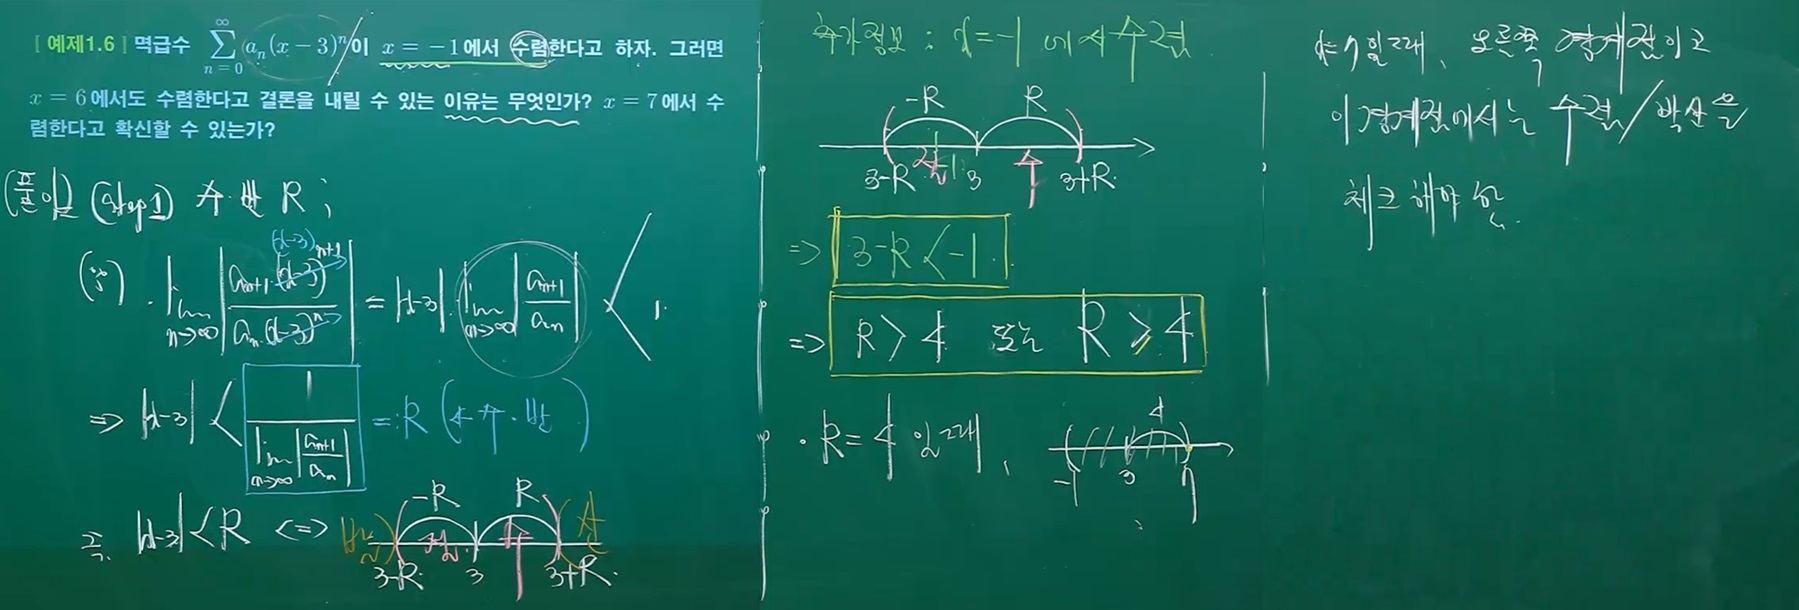 [ 예제1.6 ] 멱급수 $\sum_{n=0}^{\infty} a_n(x-3)^n$이 x = −1에서 수렴한다고 하자. 그러면
x = 6에서도 수렴한다고 결론을 내릴 수 있는 이유는 무엇인가? x = 7에서 수
렴한다고 확신할 수 있는가?
(풀이) (step1) 수.반 R ;
(∵) $\lim_{n\to\infty} \left| \frac{a_{n+1} \cdot (x-3)^{n+1}}{a_n \cdot (x-3)^n} \right| = |x-3| \cdot \lim_{n\to\infty} \left| \frac{a_{n+1}}{a_n} \right| < 1.$
(x-3)
⇒ $|x-3| < \frac{1}{\lim_{n\to\infty} \left| \frac{a_{n+1}}{a_n} \right|}$ =: R (수.반)
즉. |x-3| < R <=>
-R R
발 수렴 산
3-R. 3 3+R.
추가정보 : x=-1 에서 수렴
-R R
-1 수렴
3-R 3 3+R.
⇒ 3-R < -1.
⇒ R > 4 또는 R ≥ 4
· R = 4 일때,
4
-1 3 7
x=7일때, 오른쪽 경계점이고
이 경계점에서는 수렴/발산을
체크해야 함.